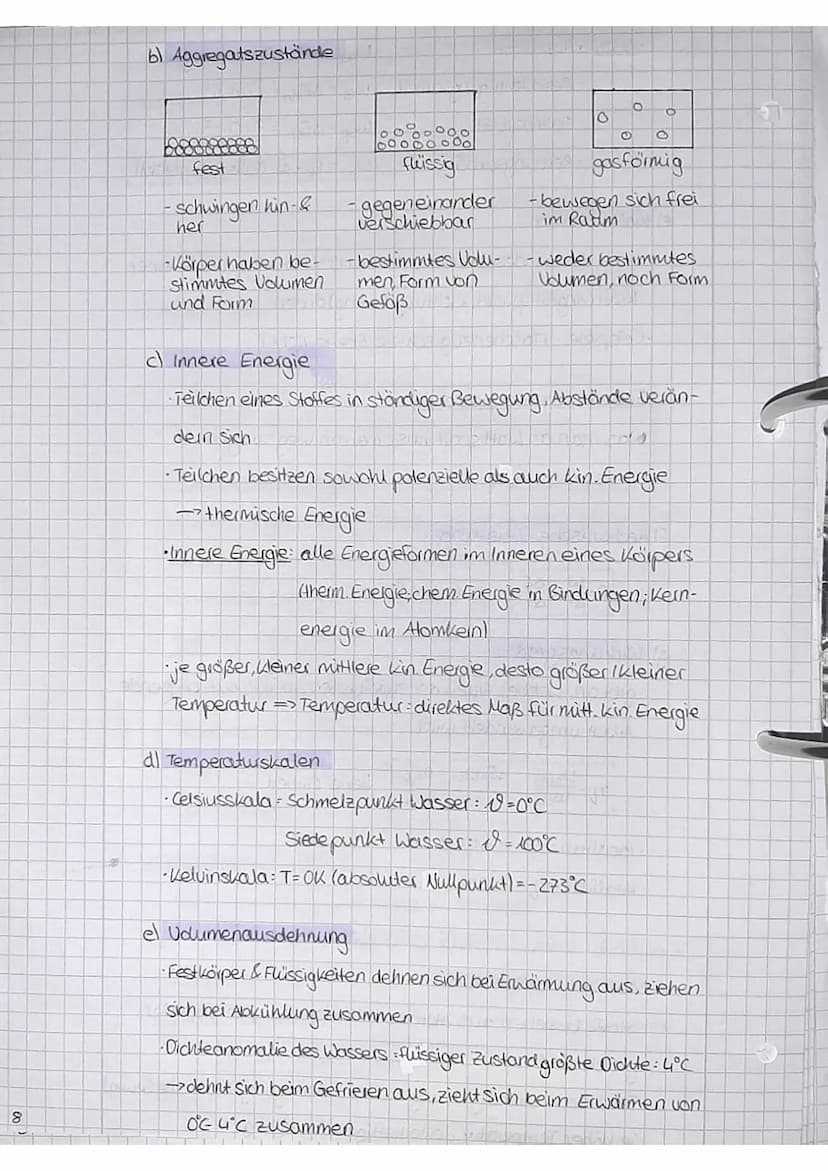 b) Aggregatszustände
fest
flüssig
gasförmig
- schwingen hin- &
her
- Körper haben be-
stimmtes Volumen
und Form
- gegeneinander
verschiebbar
- bestimmtes Volu-
men, Form von
Gefäß
- bewegen sich frei
im Raum
- weder bestimmtes
Volumen, noch Form
c) Innere Energie
· Teilchen eines Stoffes in ständiger Bewegung, Abstände verän-
dern sich
· Teilchen besitzen sowohl potenzielle als auch kin. Energie
→ thermische Energie
· Innere Energie: alle Energieformen im Inneren eines Körpers
(therm. Energie, chem. Energie in Bindungen; Kern-
energie im Atomkern)
· je größer, kleiner mittlere kin. Energie, desto größer / kleiner
Temperatur => Temperatur: direktes Maß für mitt. kin. Energie
d) Temperaturskalen
· Celsiusskala: Schmelzpunkt Wasser: ϑ = 0°C
Siedepunkt Wasser: ϑ = 100°C
· Kelvinskala: T = 0K (absoluter Nullpunkt) = -273°C
e) Volumenausdehnung
· Festkörper & Flüssigkeiten dehnen sich bei Erwärmung aus, ziehen
sich bei Abkühlung zusammen
· Dichteanomalie des Wassers: flüssiger Zustand größte Dichte: 4°C
→ dehnt sich beim Gefrieren aus, zieht sich beim Erwärmen von
0°C 4°C zusammen
8